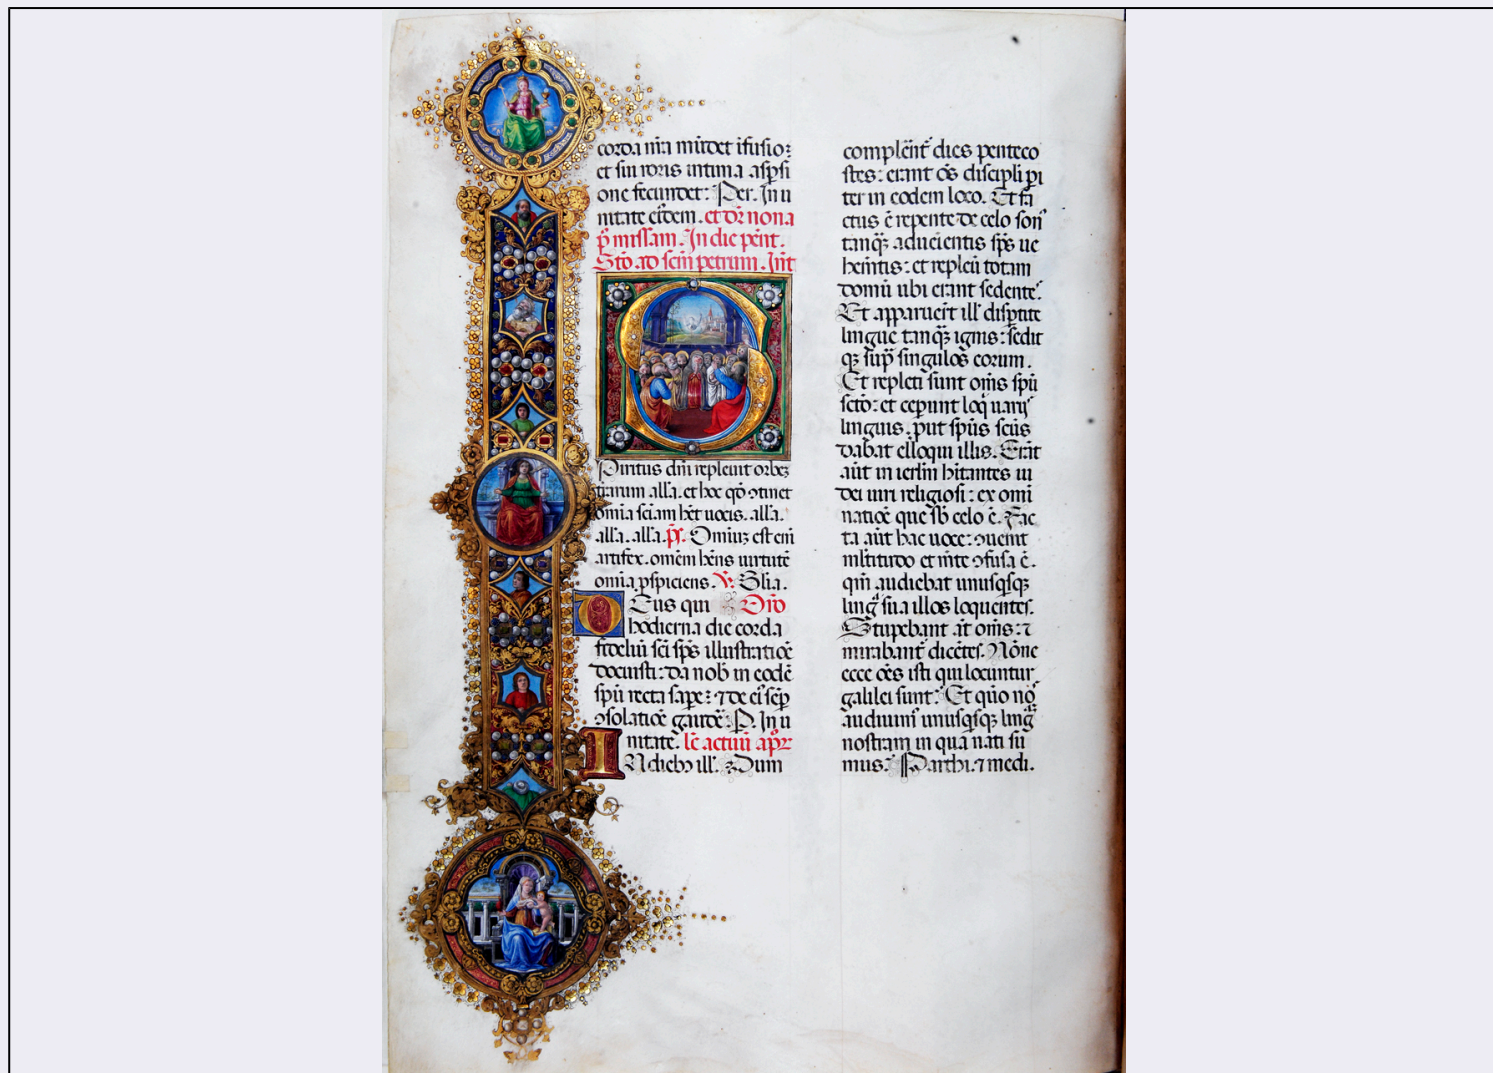 corda nr̄a mūdet ifusio:
et sui roris intima asp̱si
one fecundet: Per. In u
nitate eiusdem. et dr̄ nona
p̄ missam. In die pent.
Sto. ad scm̄ petrum. Int̄
S
Piritus dn̄i repleuit orbez
terrarum all'a. et hoc qd̄ ↄtinet
omnia sciam h̄et uocis. all'a.
all'a. all'a. p̄s. Omniuz est eni
artifex. omēm hn̄s uirtutē
omnia ꝑspiciens. V̄. Glia.
Deus qui Orō
hodierna die corda
fidelium sc̄i sp̄s illustratiōe
docuisti: da nob̄ in eodē
spū recta sape: ⁊ de ei' sēp
ↄsolatiōe gaudē. P. In u
nitate. lc̄ actuū apr̄
IN dieb᷒ ill'. Dum
complēnt̄ dies penteco
stes: erant oēs discipli pi
ter in eodem loco. Et fa
ctus ē repente de celo son'
tanqꝫ aduenientis sp̄s ue
hemētis: et repleu totam
domū ubi erant sedente'.
Et apparuerūt ill' disptite
lingue tanqꝫ ignis: sedit
qꝫ sup̄ singulos eorum.
Et repleti sunt om̄s spū
sctō: et ceperunt loq uarijs
linguis. put spūs scūs
dabat elloqui illis. Erāt
aūt in ierl̄m hītantes iu
dei uiri religiosi: ex omi
natiōe que sb̄ celo ē. Fac
ta aūt hac uoce: ↄuenit
mltitudo et mēte ↄfusa ē.
qm̄ audiebat unusqisqꝫ
ling̃ sua illos loquentes.
Stupebant āt om̄s: ⁊
mirabant̄ dicētes. Nōne
ecce oēs isti qui locuntur
galilei sunt: Et quō nōs
audiuim' unusqisqꝫ ling̃
nostram in qua nati su
mus: Parthi. ⁊ medi.